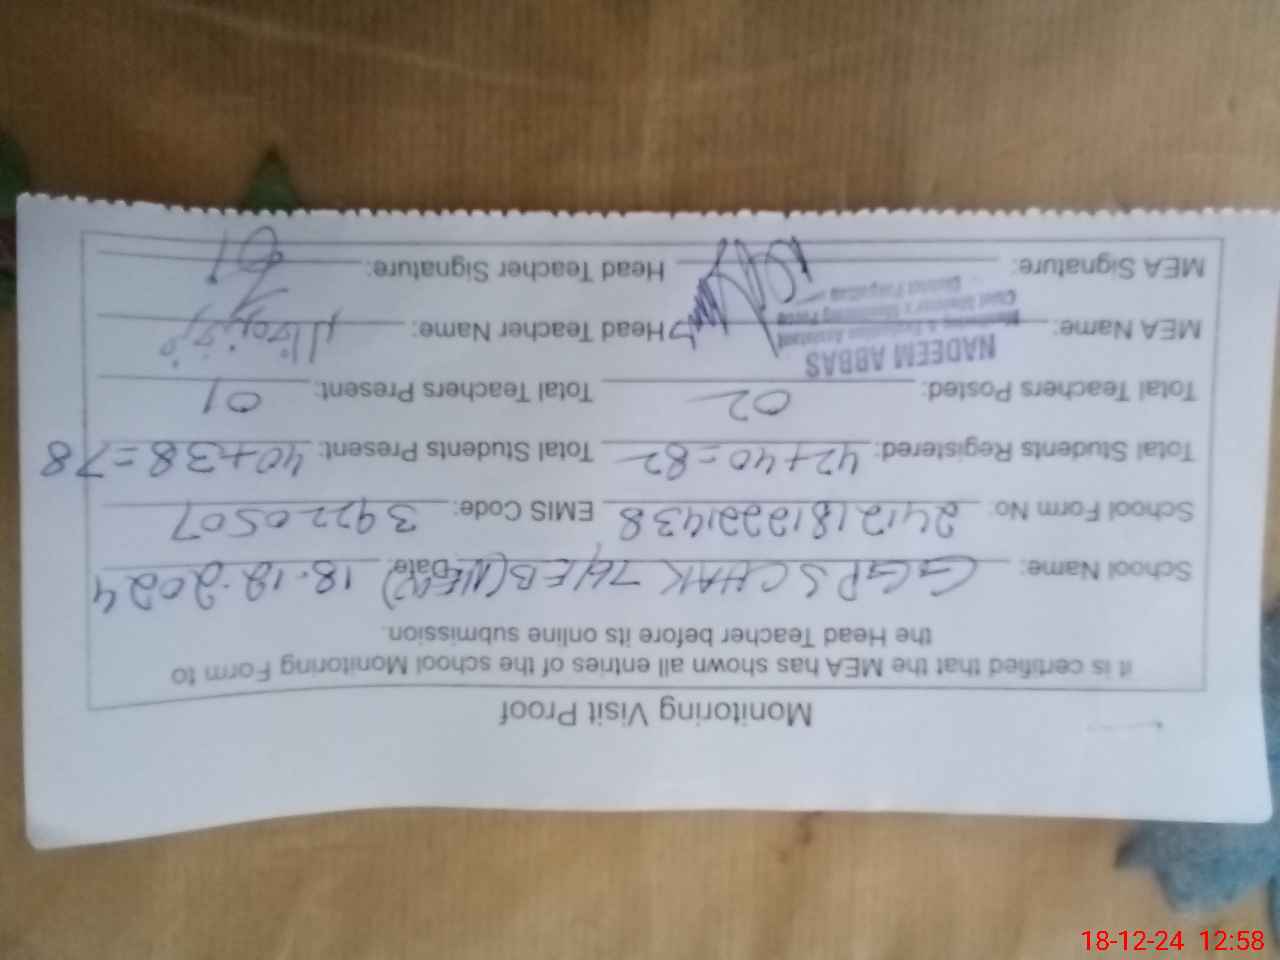 Monitoring Visit Proof
it is certified that the MEA has shown all entries of the school Monitoring Form to
the Head Teacher before its online submission.
School Name: GGPS CHAK 74/EB (NEW) Date: 18-12-2024
School Form No: 2412181221438 EMIS Code: 39220507
Total Students Registered: 42+40=82 Total Students Present: 40+38=78
Total Teachers Posted: 02 Total Teachers Present: 01
NADEEM ABBAS
MEA Name: Head Teacher Name:
Monitoring & Evaluation Assistant
Chief Minister's Monitoring Force
District Pakpattan
MEA Signature: Head Teacher Signature:
18-12-24 12:58